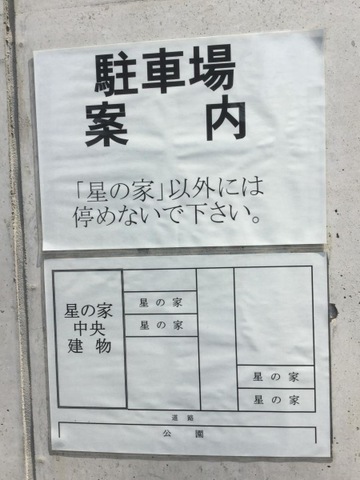 駐車場
案内
「星の家」以外には
停めないで下さい。
星の家
中央
建物
星の家
星の家
星の家
星の家
道路
公園